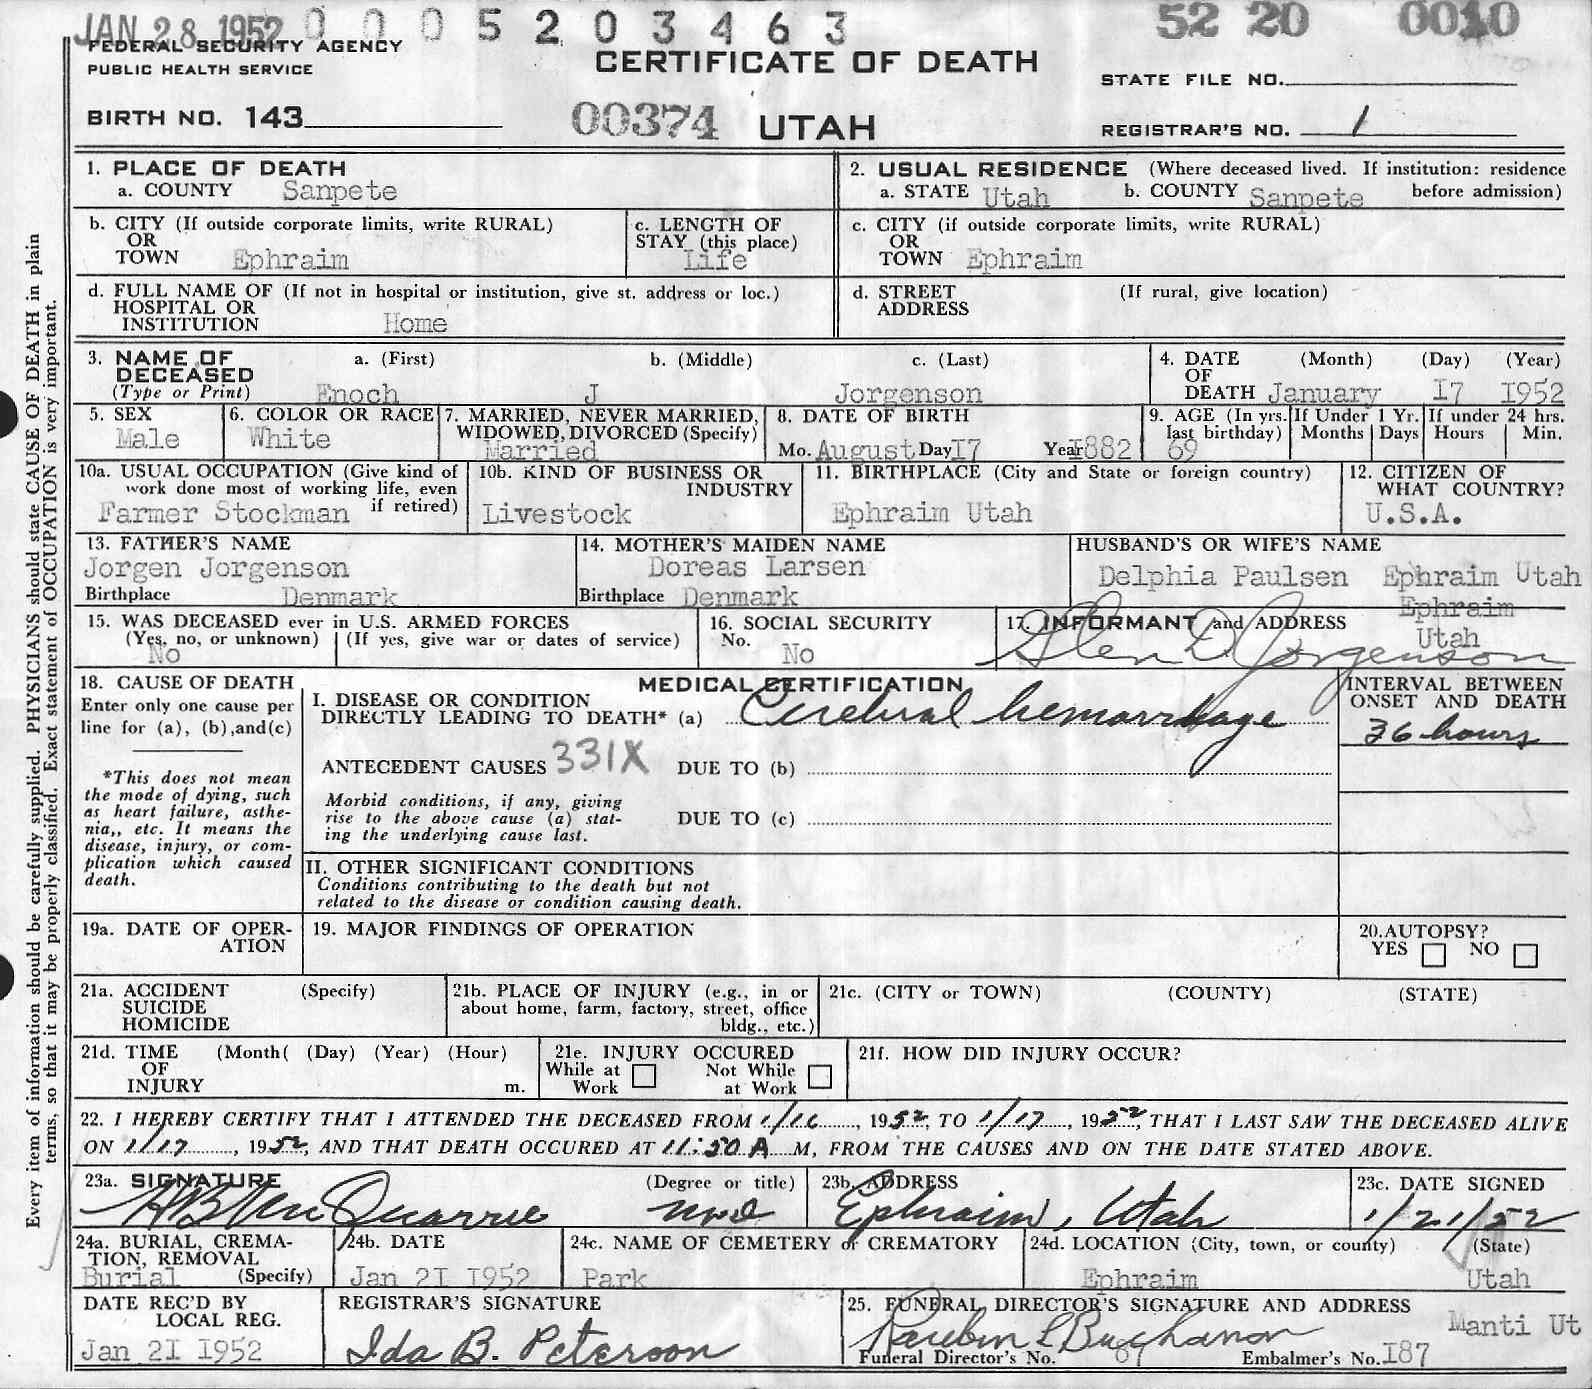 JAN 28 1952 0 0 0 5 2 0 3 4 6 3 52 20 0010
FEDERAL SECURITY AGENCY
PUBLIC HEALTH SERVICE
CERTIFICATE OF DEATH
STATE FILE NO.
BIRTH NO. 143 00374 UTAH
REGISTRAR'S NO. 1
1. PLACE OF DEATH
a. COUNTY Sanpete
2. USUAL RESIDENCE (Where deceased lived. If institution: residence before admission)
a. STATE Utah b. COUNTY Sanpete
b. CITY (If outside corporate limits, write RURAL)
OR
TOWN Ephraim
c. LENGTH OF
STAY (this place)
Life
c. CITY (if outside corporate limits, write RURAL)
OR
TOWN Ephraim
d. FULL NAME OF (If not in hospital or institution, give st. address or loc.)
HOSPITAL OR
INSTITUTION Home
d. STREET (If rural, give location)
ADDRESS
3. NAME OF a. (First) b. (Middle) c. (Last)
DECEASED
(Type or Print) Enoch J Jorgenson
4. DATE (Month) (Day) (Year)
OF
DEATH January I7 I952
5. SEX
Male
6. COLOR OR RACE
White
7. MARRIED, NEVER MARRIED,
WIDOWED, DIVORCED (Specify)
Married
8. DATE OF BIRTH
Mo. August Day I7 Year I882
9. AGE (In yrs.
last birthday)
69
If Under 1 Yr.
Months Days
If under 24 hrs.
Hours Min.
10a. USUAL OCCUPATION (Give kind of
work done most of working life, even
if retired)
Farmer Stockman
10b. KIND OF BUSINESS OR
INDUSTRY
Livestock
11. BIRTHPLACE (City and State or foreign country)
Ephraim Utah
12. CITIZEN OF
WHAT COUNTRY?
U.S.A.
13. FATHER'S NAME
Jorgen Jorgenson
Birthplace Denmark
14. MOTHER'S MAIDEN NAME
Doreas Larsen
Birthplace Denmark
HUSBAND'S OR WIFE'S NAME
Delphia Paulsen Ephraim Utah
15. WAS DECEASED ever in U.S. ARMED FORCES
(Yes, no, or unknown) (If yes, give war or dates of service)
No
16. SOCIAL SECURITY
No.
No
Ephraim
17. INFORMANT and ADDRESS
Utah
Glen D Jorgenson
18. CAUSE OF DEATH
Enter only one cause per
line for (a), (b),and(c)
*This does not mean
the mode of dying, such
as heart failure, asthe-
nia,, etc. It means the
disease, injury, or com-
plication which caused
death.
MEDICAL CERTIFICATION
I. DISEASE OR CONDITION
DIRECTLY LEADING TO DEATH* (a) Cerebral hemorrhage
INTERVAL BETWEEN
ONSET AND DEATH
36 hours
ANTECEDENT CAUSES 331X DUE TO (b)
Morbid conditions, if any, giving
rise to the above cause (a) stat-
ing the underlying cause last.
DUE TO (c)
II. OTHER SIGNIFICANT CONDITIONS
Conditions contributing to the death but not
related to the disease or condition causing death.
19a. DATE OF OPER-
ATION
19. MAJOR FINDINGS OF OPERATION
20.AUTOPSY?
YES NO
21a. ACCIDENT (Specify)
SUICIDE
HOMICIDE
21b. PLACE OF INJURY (e.g., in or
about home, farm, factory, street, office
bldg., etc.)
21c. (CITY or TOWN) (COUNTY) (STATE)
21d. TIME (Month( (Day) (Year) (Hour)
OF
INJURY m.
21e. INJURY OCCURED
While at Work Not While at Work
21f. HOW DID INJURY OCCUR?
22. I HEREBY CERTIFY THAT I ATTENDED THE DECEASED FROM 1/16, 1952, TO 1/17, 1952, THAT I LAST SAW THE DECEASED ALIVE
ON 1/17, 1952, AND THAT DEATH OCCURED AT 11:50 A M, FROM THE CAUSES AND ON THE DATE STATED ABOVE.
23a. SIGNATURE (Degree or title)
McQuarrie MD
23b. ADDRESS
Ephraim, Utah
23c. DATE SIGNED
1/21/52
24a. BURIAL, CREMA-
TION, REMOVAL
Burial (Specify)
24b. DATE
Jan 2I I952
24c. NAME OF CEMETERY or CREMATORY
Park
24d. LOCATION (City, town, or county) (State)
Ephraim Utah
DATE REC'D BY
LOCAL REG.
Jan 2I I952
REGISTRAR'S SIGNATURE
Ida B. Peterson
25. FUNERAL DIRECTOR'S SIGNATURE AND ADDRESS
Manti Ut
Reuben L Buchanan
Funeral Director's No. 67 Embalmer's No. I87
Every item of information should be carefully supplied. PHYSICIANS should state CAUSE OF DEATH in plain
terms, so that it may be properly classified. Exact statement of OCCUPATION is very important.